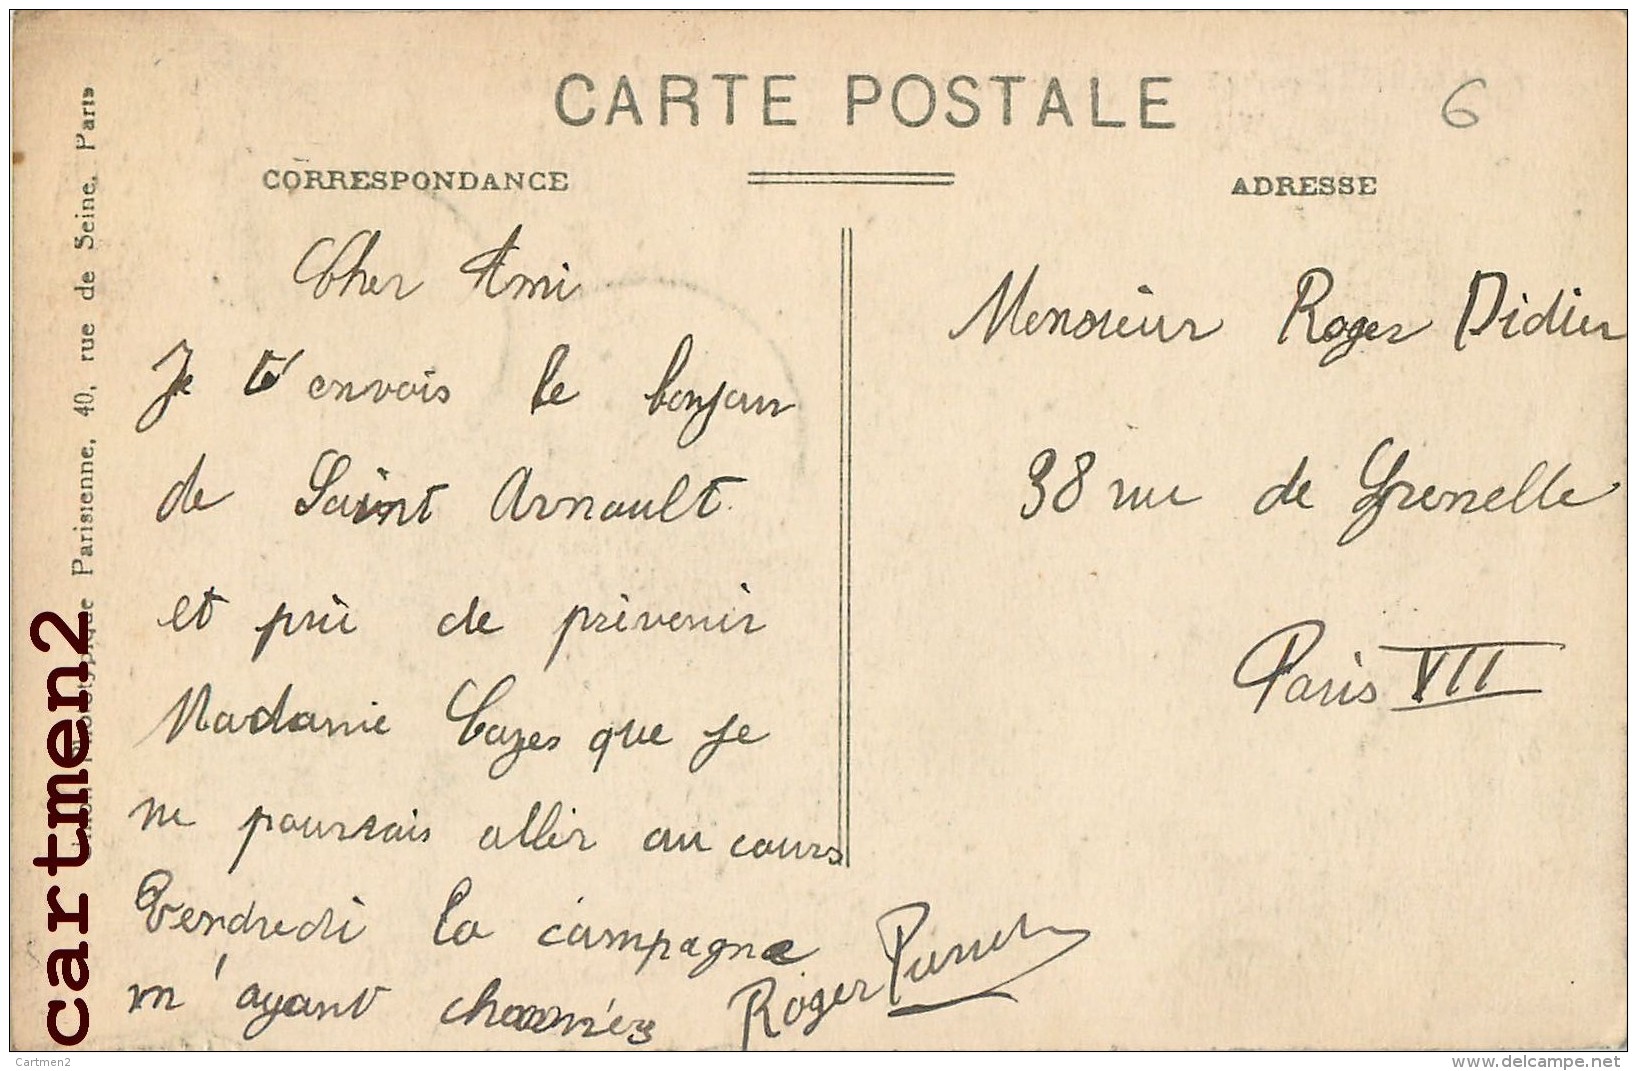 CARTE POSTALE
6
CORRESPONDANCE
ADRESSE
Cher Ami
Je t'envois le bonjour
de Saint Arnault
et prie de prévenir
Madame Cazes que je
ne pourrais aller au cours
Vendredi la campagne
m'ayant
Roger
Monsieur Roger Didier
38 rue de Grenelle
Paris VII
Phototypique Parisienne, 40, rue de Seine, Paris
cartmen2
Cartmen2
www.delcampe.net